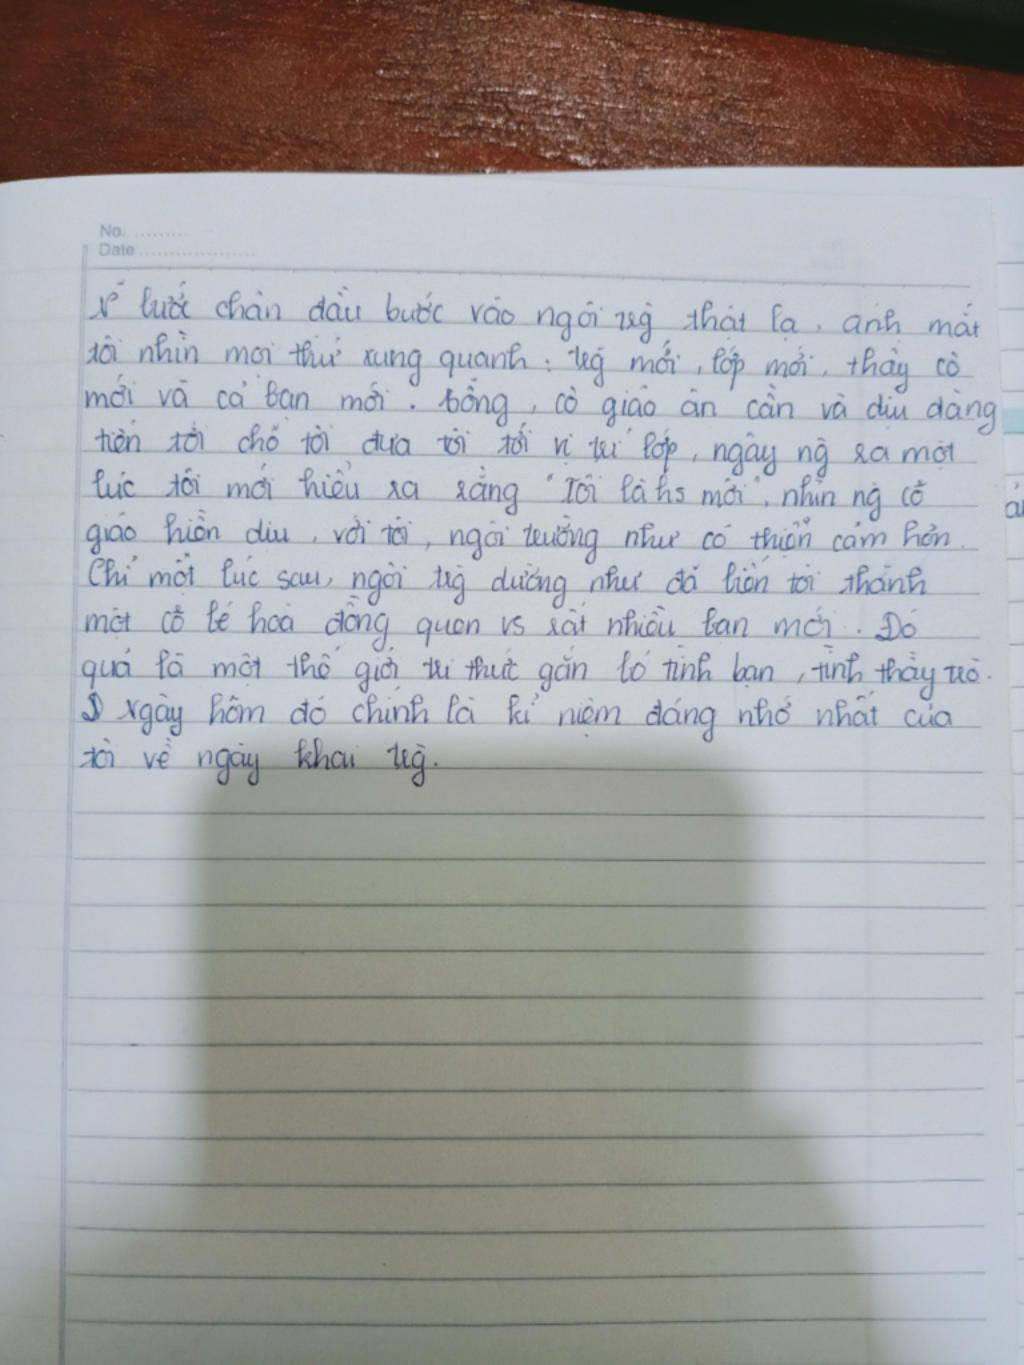 No. .........
Date ...................
bước chân đầu bước vào ngôi trg thật lạ, ánh mắt
tôi nhìn mọi thứ xung quanh: trg mới, lớp mới, thầy cô
mới và cả bạn mới. Bỗng, cô giáo ân cần và dịu dàng
tiến tới chỗ tôi đưa tôi tới vị trí lớp, ngây ng ra một
lúc tôi mới hiểu ra rằng "Tôi là hs mới", nhìn ng cô
giáo hiền dịu, với tôi, ngôi trường như có thiện cảm hơn.
Chỉ một lúc sau, ngôi trg dường như đã biến tôi thành
một cô bé hoà đồng quen vs rất nhiều bạn mới. Đó
quả là một thế giới tri thức gắn bó tình bạn, tình thầy trò.
Ngày hôm đó chính là kỉ niệm đáng nhớ nhất của
tôi về ngày khai trg.